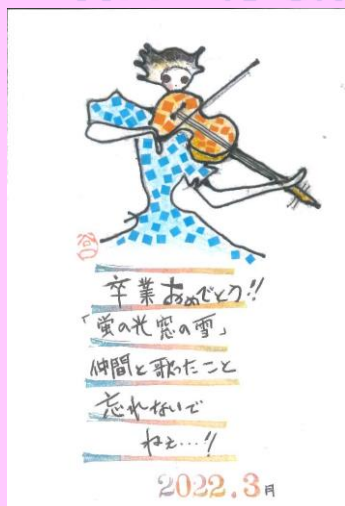 卒業おめでとう!!
「蛍の光窓の雪」
仲間と歌ったこと
忘れないで
ねぇ…!!
2022.3月